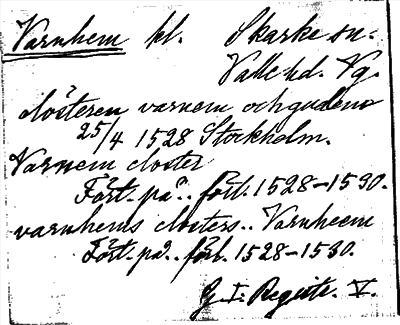 Varnhem kl. Skarke sn.
Valle hd. Vg.
clösteren varnem och gudens
25/4 1528 Stockholm.
Varnem closter
Fört. på .. förl. 1528-1530.
varnhems closters.. Varnheem
Fört. på .. förl. 1528-1530.
G. I:s Registr. V.